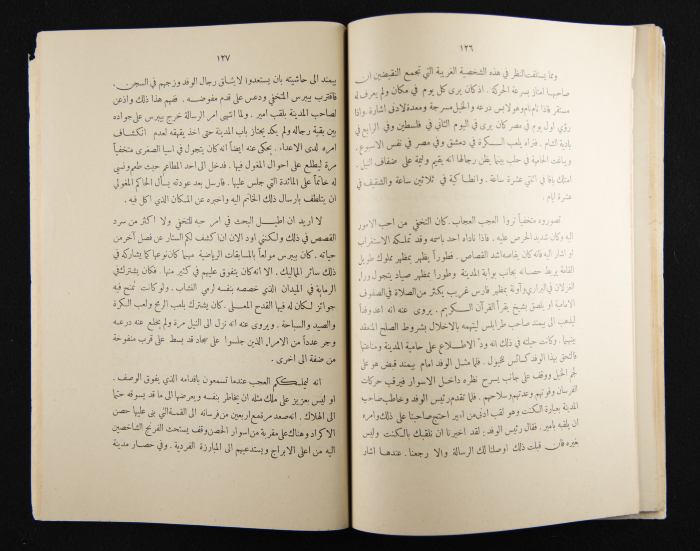 ١٢٦
ومما يستلفت النظر في هذه الشخصية الغريبة التي تجمع النقيضين ان
صاحبها امتاز بسرعة الحركة. اذ كان يرى كل يوم في مكان ولم يعرف له
مستقر فاذا نام نام وهو لابس درعه والخيل مسرجة ومعدة لادنى اشارة. واذا
رؤي اول يوم في مصر كان يرى في اليوم الثاني في فلسطين وفي الرابع في
بادية الشام. فتراه يلعب الكرة في دمشق وفي مصر في نفس الاسبوع.
ويباغت الحامية في حلب بينما يظن رجالها انه يقيم وليمة على ضفاف النيل.
امتلك يافا في اثنتي عشرة ساعة. وانطاكية في ثلاثين ساعة والشقيف في
عشرة ايام.
تصوروه متخفياً تروا العجب العجاب. كان التخفي من احب الامور
اليه وكان شديد الحرص عليه. فاذا ناداه احد باسمه وقد تملكه الاستغراب
او اشار اليه فانه كان يقاصه اشد القصاص. فطوراً يظهر بمظهر مملوك طويل
القامة يربط حصانه بجانب بوابة المدينة وطورا بمظهر صياد يتجول وراء
الغزلان في البراري وآونة بمظهر فارس غريب يكثر من الصلاة في الصفوف
الامامية او يلصق بشيخ يقرأ القرآن الكريم. يروى عنه انه اعد وفداً
ليذهب الى بيمند صاحب طرابلس ليتهمه بالاخلال بشروط الصلح المنعقد
بينهما. وكانت حيلته في ذلك انه ودّ الاطلاع على حامية المدينة ومناعتها
فالتحق بهذا الوفد كسائس للخيول. فلما مثل الوفد امام بيمند قبض هو على
لجم الخيل ووقف على جانب يسرح نظره داخل الاسوار فيرقب حركات
الفرسان وقوتهم وعدتهم وسلاحهم. فلما تقدم رئيس الوفد وخاطب صاحب
المدينة بعبارة الكنت وهو لقب ادنى من امير احتج صاحبنا على ذلك وامره
ان يلقبه بامير. فقال رئيس الوفد: لقد اخبرنا ان نلقبك بالكنت وليس
بغيره فان قبلت ذلك اوصلنا لك الرسالة والا رجعنا. عندها اشار
١٢٧
بيمند الى حاشيته بان يستعدوا لايثاق رجال الوفد وزجهم في السجن.
فاقترب بيبرس المتخفي ودعس على قدم مفوضه. ففهم هذا ذلك واذعن
لصاحب المدينة بلقب امير. ولما انتهى امر الرسالة خرج بيبرس على جواده
بين بقية رجاله ولم يكد يجتاز باب المدينة حتى اخذ يقهقه لعدم انكشاف
امره لدى الاعداء. يحكى عنه ايضاً انه كان يتجول في اسيا الصغرى متخفياً
مرة ليطلع على احوال المغول فيها. فدخل الى احد المطاعم حيث طعم ونسي
له خاتماً على المائدة التي جلس عليها. فارسل بعد عودته يسأل الحاكم المغولي
ان يتلطف بارسال ذلك الخاتم اليه واخبره عن المكان الذي اكل فيه.
لا اريد ان اطيل البحث في امر حبه للتخفي ولا اكثر من سرد
القصص في ذلك ولكنني اود الان ان اكشف لكم الستار عن فصل آخر من
حياته. كان بيبرس مولعاً بالمسابقات الرياضية مهما كان نوعها كما يشاركه في
ذلك سائر المماليك. الا انه كان يتفوق عليهم في كثير منها. فكان يشترك في
الرماية في الميدان الذي خصصه بنفسه لرمي النشاب. ولو كانت تمنح فيه
جوائز لكان له فيها القدح المعلى. كان يشترك بلعب الرمح ولعب الكرة
والصيد والسباحة. ويروى عنه انه نزل الى النيل مرة ولم يخلع عنه درعه
وجر عدداً من الامراء الذين جلسوا على سجاد قد بسط على قرب منفوخة
من ضفة الى اخرى.
انه ليملككم العجب عندما تسمعون باقدامه الذي يفوق الوصف.
او ليس بعزيز على ملك مثله ان يخاطر بنفسه ويعرضها الى ما قد يسوقه حتما
الى الهلاك. انه صعد مرة مع اربعين من فرسانه الى القمة التي بنى عليها حصن
الاكراد وهناك على مقربة من اسوار الحصن وقف يستحث الفرنج الشاخصين
اليه من اعلى الابراج ويستدعيهم الى المبارزة الفردية. وفي حصار مدينة